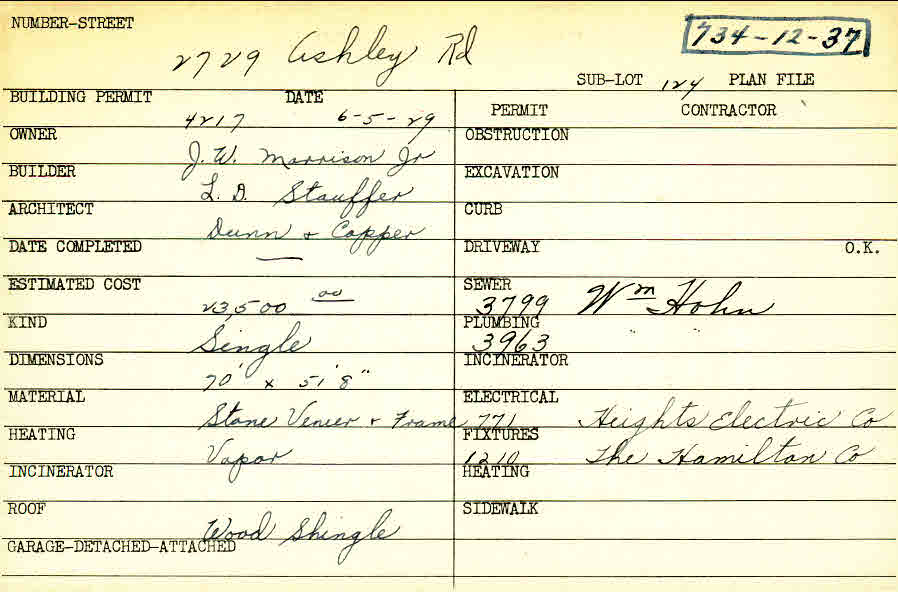 NUMBER-STREET
2729 Ashley Rd
734-12-37
SUB-LOT 124 PLAN FILE
BUILDING PERMIT DATE
4217 6-5-29
PERMIT CONTRACTOR
OWNER J. W. Morrison Jr
OBSTRUCTION
BUILDER L. D. Stauffer
EXCAVATION
ARCHITECT Dunn + Copper
CURB
DATE COMPLETED —
DRIVEWAY O.K.
ESTIMATED COST 23,500 00
SEWER 3799 Wm Hohn
KIND Single
PLUMBING 3963 " "
DIMENSIONS 70' x 51' 8"
INCINERATOR
MATERIAL Stone Veneer + Frame
ELECTRICAL 771 Heights Electric Co
HEATING Vapor
FIXTURES 1210 The Hamilton Co
INCINERATOR
HEATING
ROOF Wood Shingle
SIDEWALK
GARAGE-DETACHED-ATTACHED